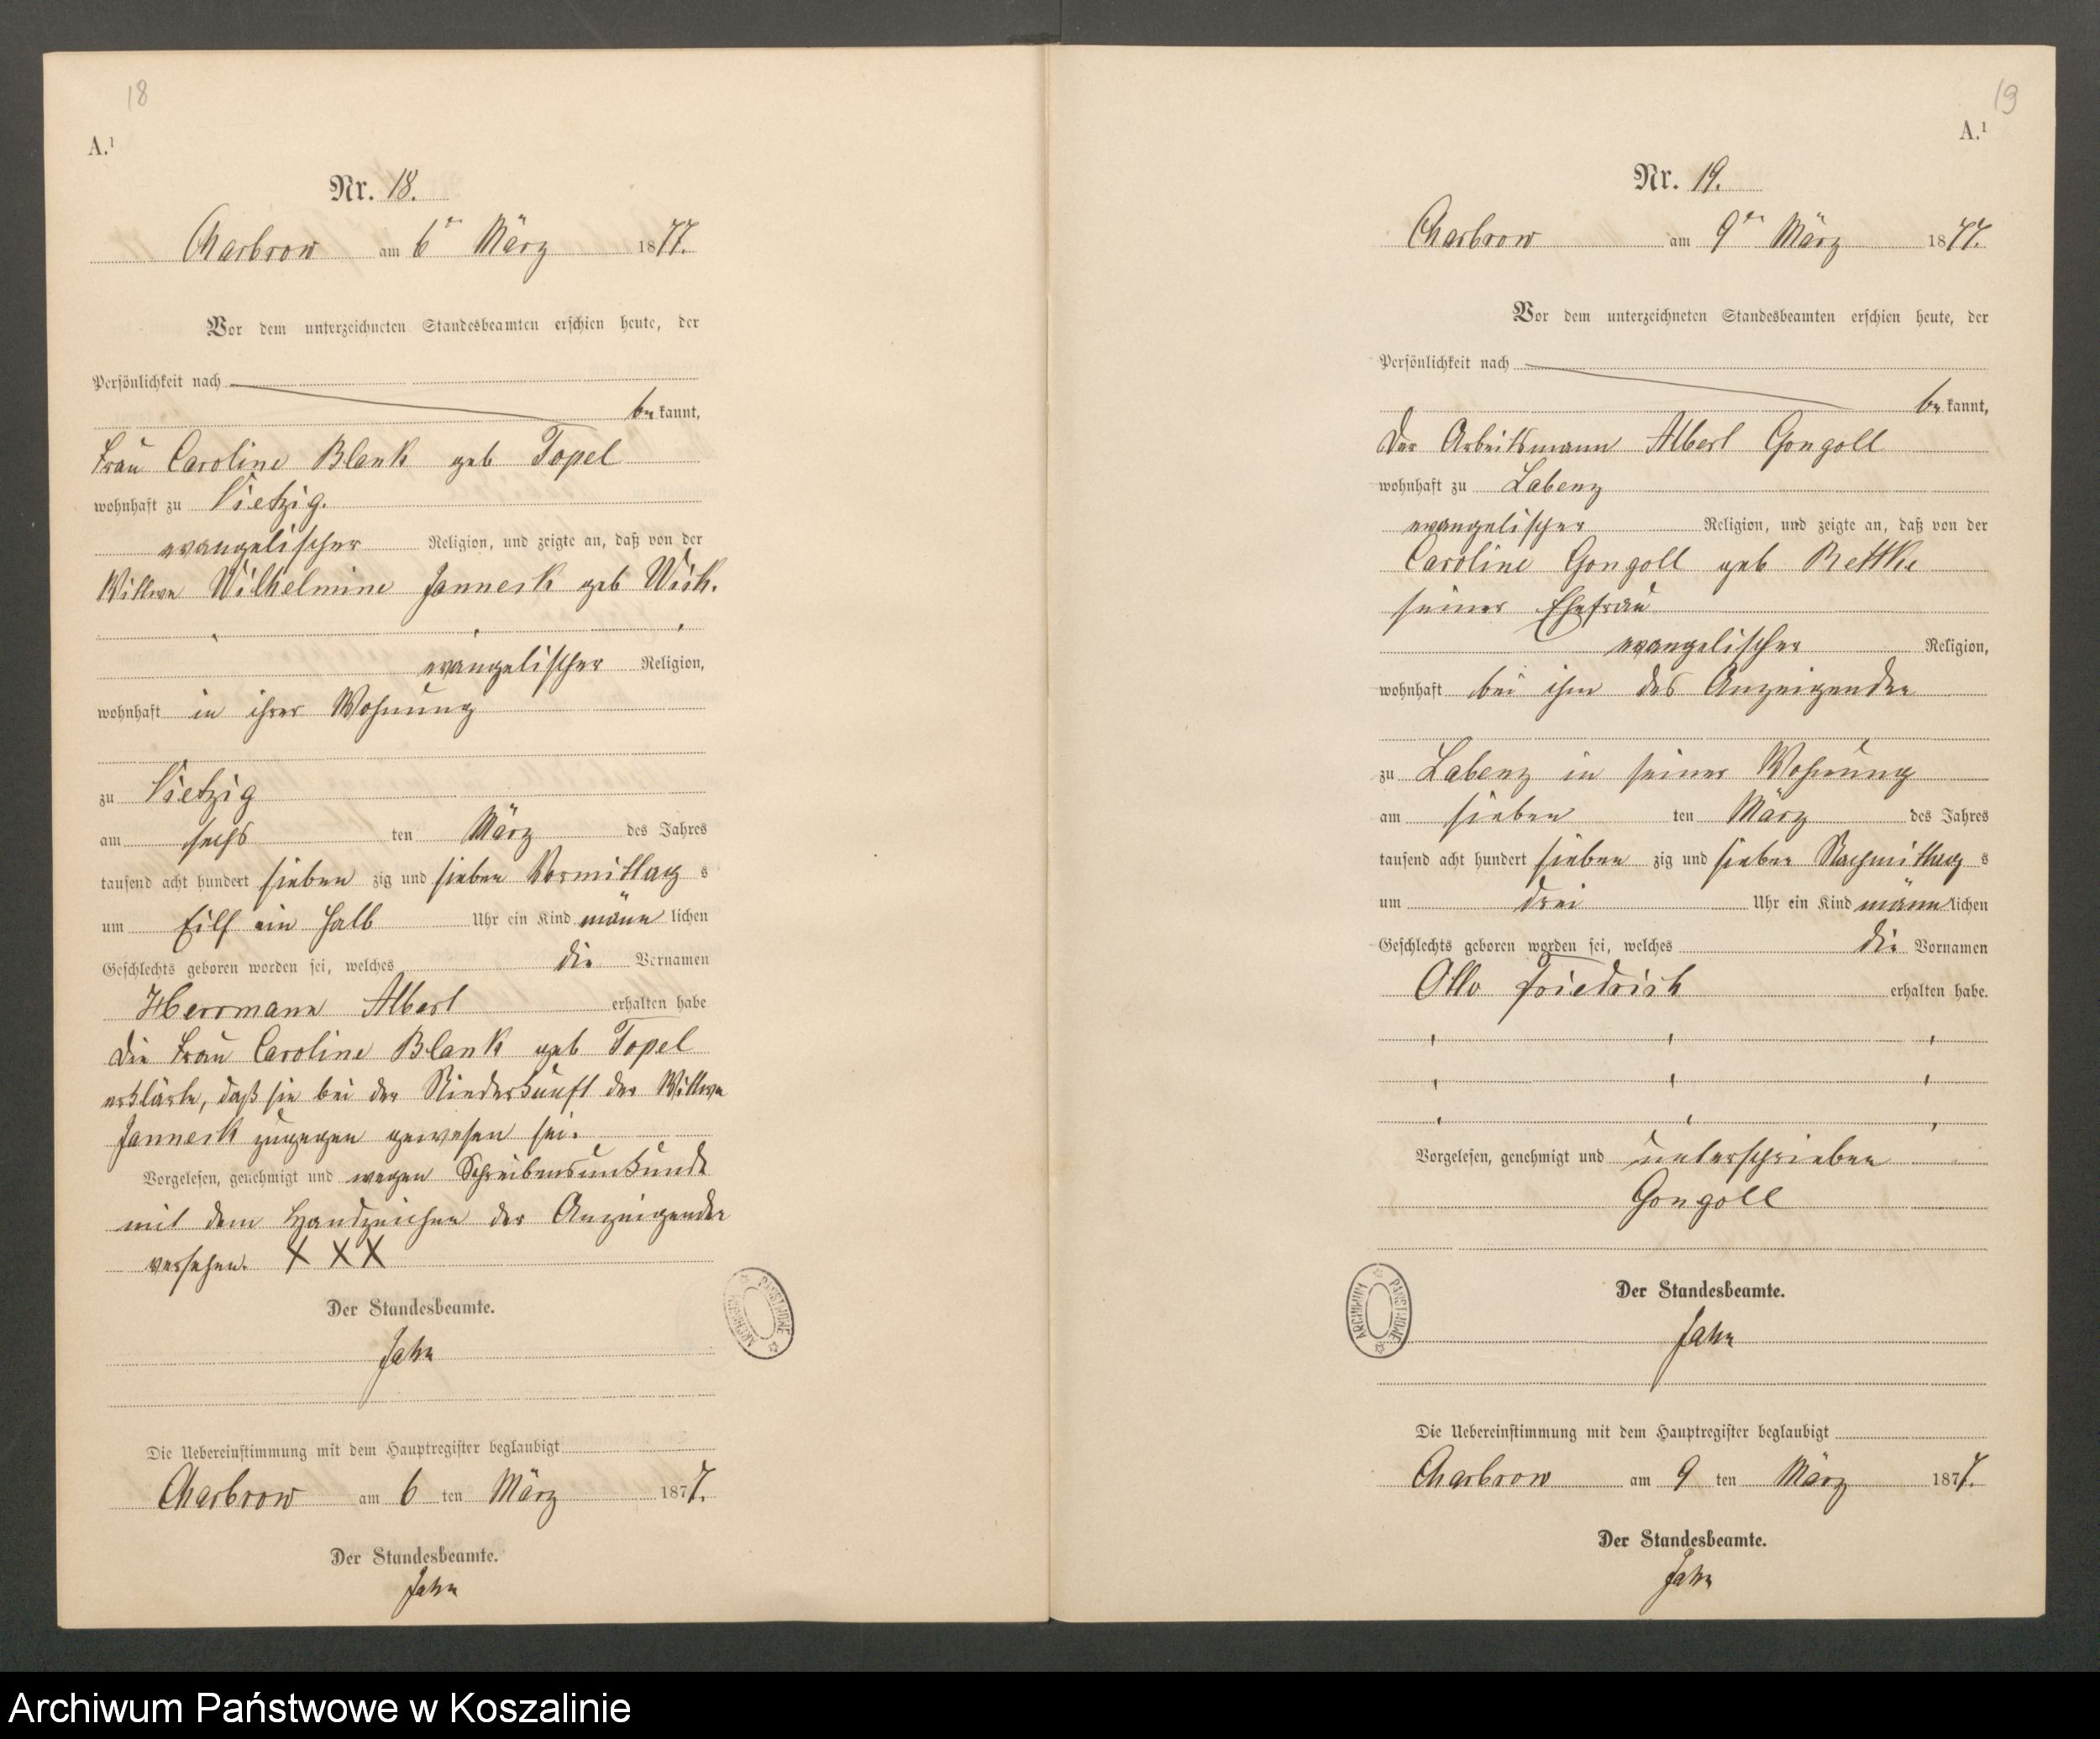 18
A.¹
Nr. 18.
Charbrow am 6ten März 1877.
Vor dem unterzeichneten Standesbeamten erschien heute, der
Persönlichkeit nach
bekannt,
Frau Caroline Blank geb Topel
wohnhaft zu Vietzig.
evangelischer Religion, und zeigte an, daß von der
Wittwe Wilhelmine Janneck geb
evangelischer Religion,
wohnhaft in ihrer Wohnung
zu Vietzig
am sechs ten März des Jahres
tausend acht hundert sieben zig und sieben Vormittag s
um Eilf ein halb Uhr ein Kind männ lichen
Geschlechts geboren worden sei, welches die Vornamen
Herrmann Albert erhalten habe
Die Frau Caroline Blank geb Topel
erklärte, daß sie bei der Niederkunft der Wittwe
Janneck zugegen gewesen sei.
Vorgelesen, genehmigt und wegen Schreibensunkunde
mit dem Handzeichen der Anzeigenden
versehen. X X X
Der Standesbeamte.
Jahn
Die Uebereinstimmung mit dem Hauptregister beglaubigt
Charbrow am 6 ten März 1877.
Der Standesbeamte.
Jahn
ARCHIWUM PAŃSTWOWE
19
A.¹
Nr. 19.
Charbrow am 9ten März 1877.
Vor dem unterzeichneten Standesbeamten erschien heute, der
Persönlichkeit nach
bekannt,
Der Arbeitsmann Albert Gongoll
wohnhaft zu Labenz
evangelischer Religion, und zeigte an, daß von der
Caroline Gongoll geb Rettke
seiner Ehefrau
evangelischer Religion,
wohnhaft bei ihm des Anzeigenden
zu Labenz in seiner Wohnung
am sieben ten März des Jahres
tausend acht hundert sieben zig und sieben Nachmittag s
um drei Uhr ein Kind männ lichen
Geschlechts geboren worden sei, welches die Vornamen
Otto Friedrich erhalten habe.
Vorgelesen, genehmigt und unterschrieben
Gongoll
ARCHIWUM PAŃSTWOWE
Der Standesbeamte.
Jahn
Die Uebereinstimmung mit dem Hauptregister beglaubigt
Charbrow am 9 ten März 1877.
Der Standesbeamte.
Jahn
Archiwum Państwowe w Koszalinie